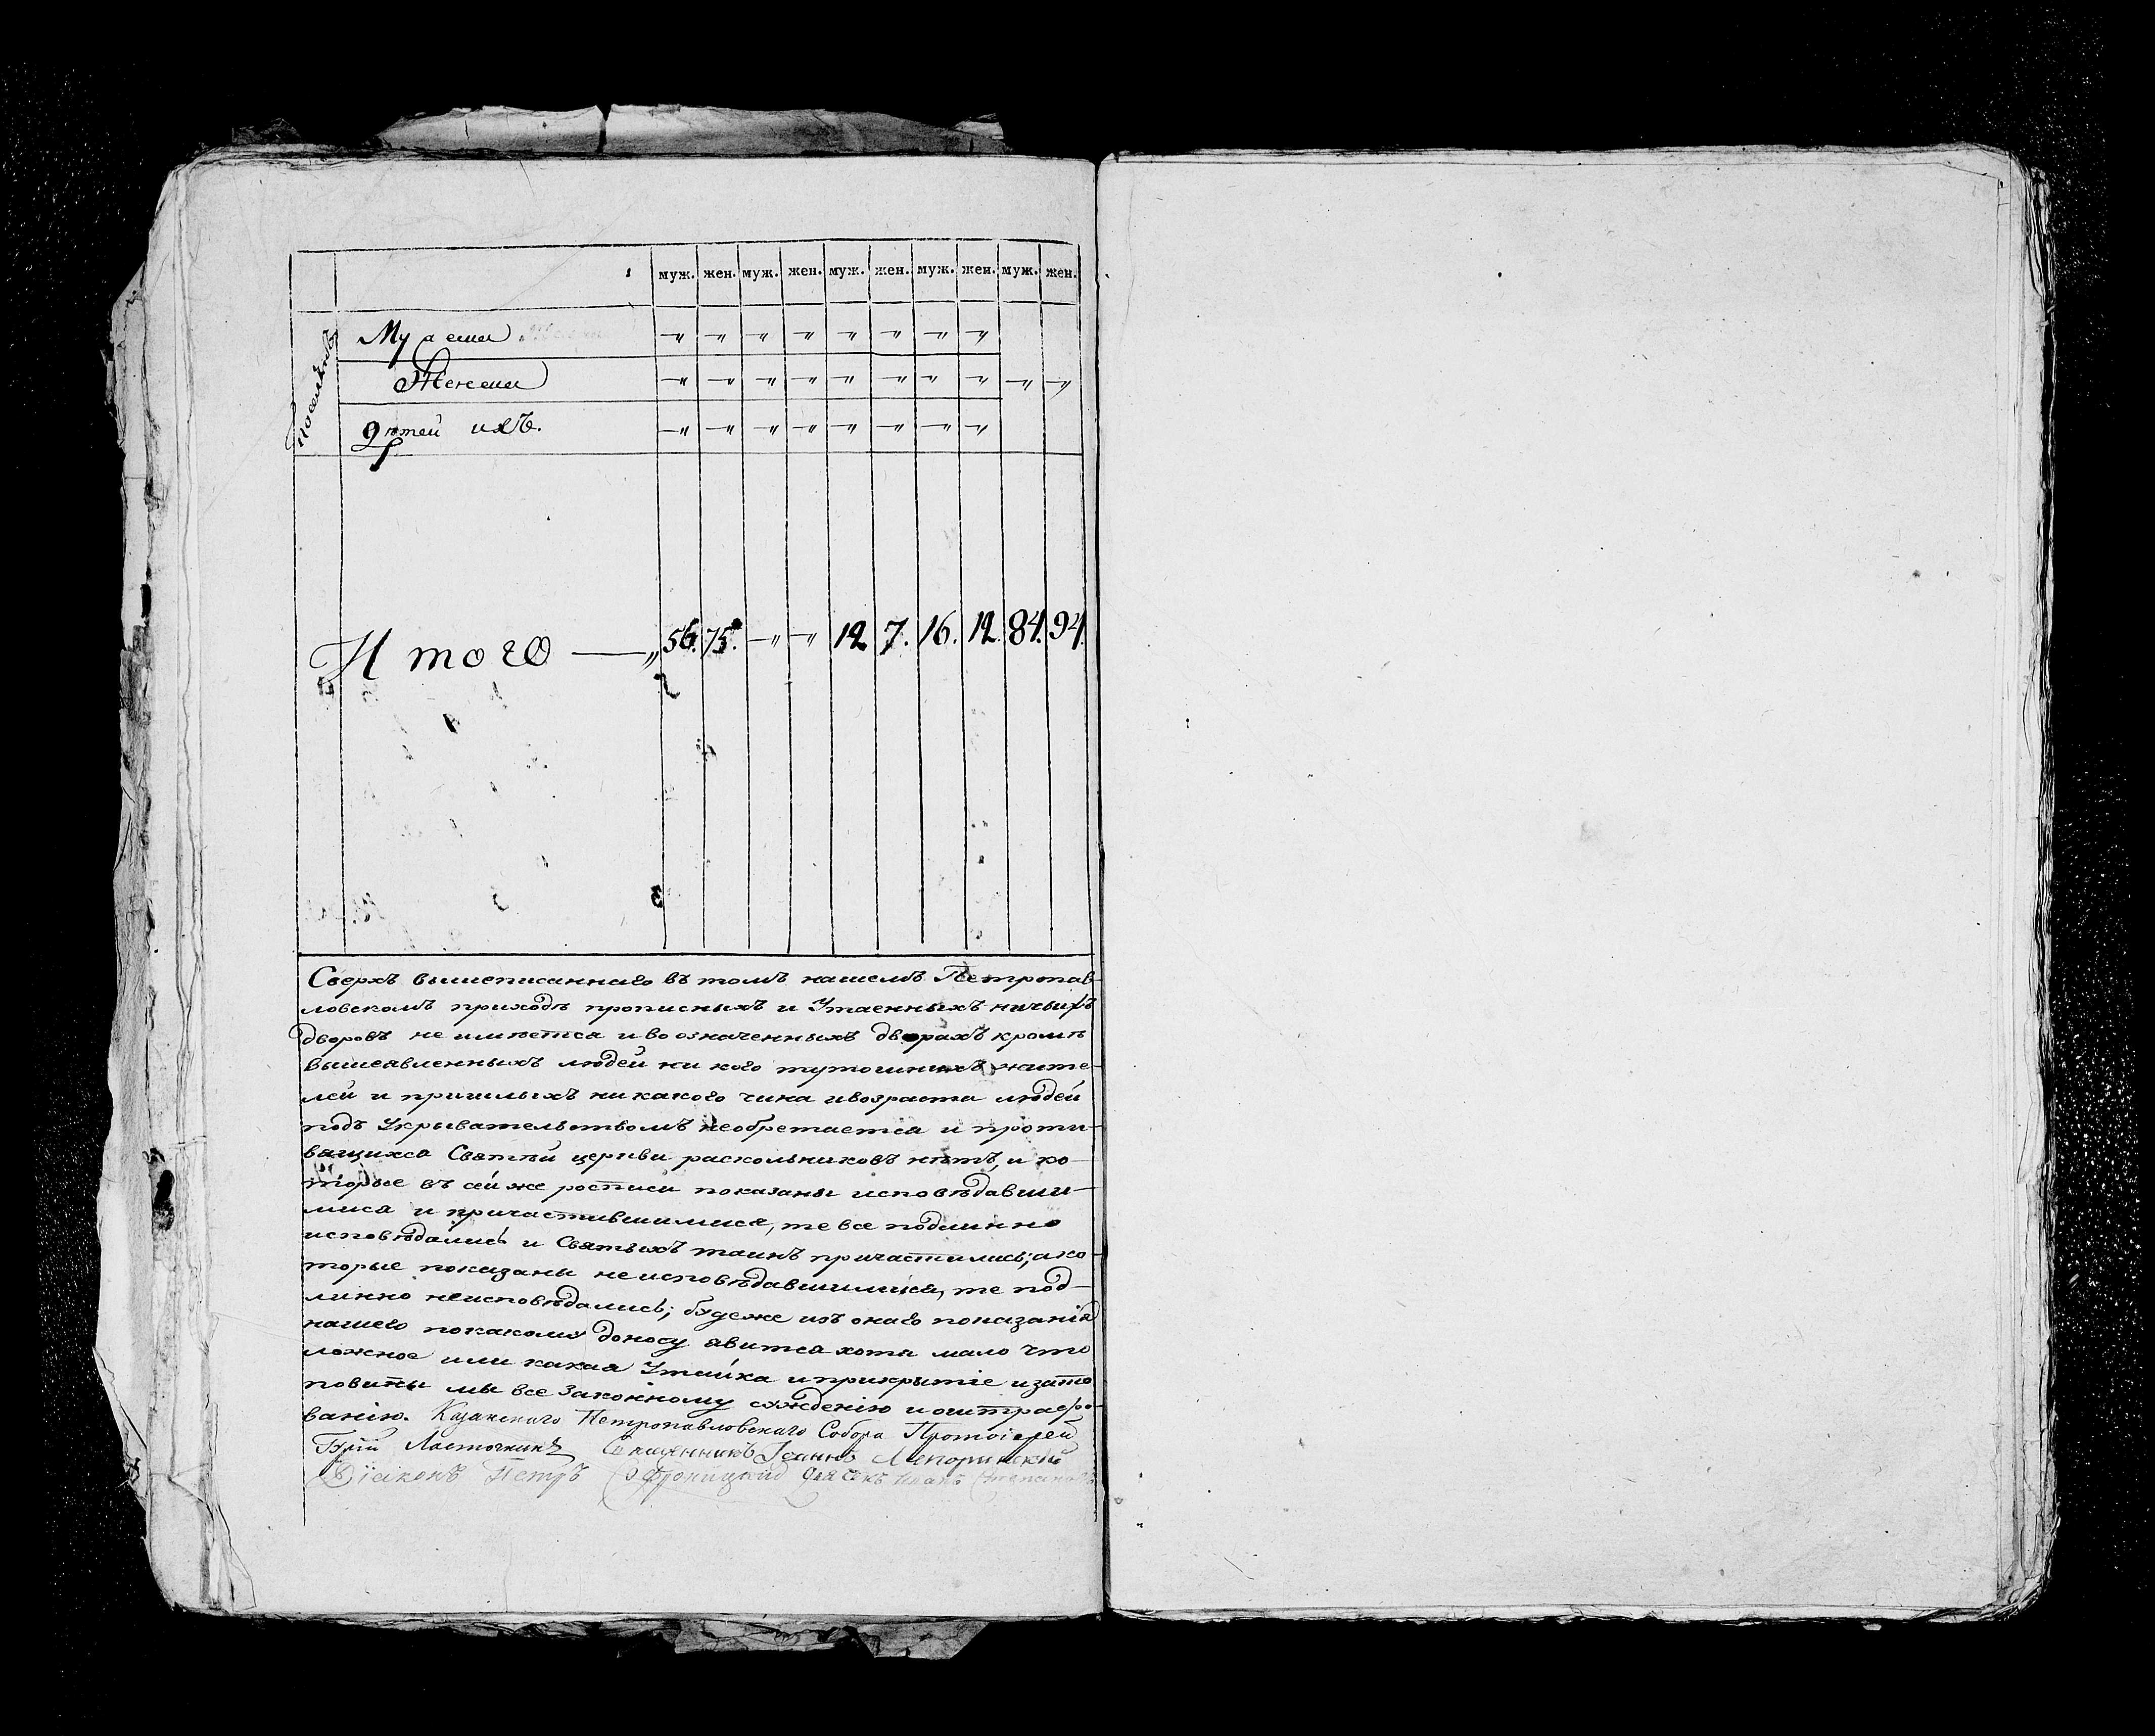 муж. жен. муж. жен. муж. жен. муж. жен. муж. жен.
Мужеска -„ -„ -„ -„ -„ -„ -„ -„
Женска -„ -„ -„ -„ -„ -„ -„ -„ -„ -„
Дѣтей ихъ. -„ -„ -„ -„ -„ -„ -„ -„
Итого —„ 56. 75. -„ -„ 12 7. 16. 12 84. 94.
Сверхъ вышеписаннаго въ томъ нашемъ Петропав-
ловскомъ приходѣ прописныхъ и Утаенныхъ ничьихъ
дворовъ не имѣется и во означенныхъ дворахъ кромѣ
вышеявленныхъ людей ни кого тутошнихъ жите-
лей и пришлыхъ никакого чина и возраста людей
подъ Укрывательствомъ необретается и проти-
вящихся Святѣй церкви раскольниковъ нѣтъ, и ко-
торые въ сей же росписи показаны исповѣдавши-
мися и причастившимися, те все подлинно
исповѣдались и Святыхъ таинъ причастились; а ко-
торые показаны неисповѣдавшимися, те под-
линно неисповѣдались; будеже изъ онаго показанія
нашего покакому доносу явится хотя мало что
ложное или какая Утайка и прикрытіе и зато
повинны мы все Законному сужденію и оштрафо-
ванію. Казанскаго Петропавловскаго Собора Протоіерей
Гурій Ласточкинъ Священникъ Іоаннъ Лепоринскій
Діаконъ Петръ Софроницкій Дьячекъ Иванъ Степановъ